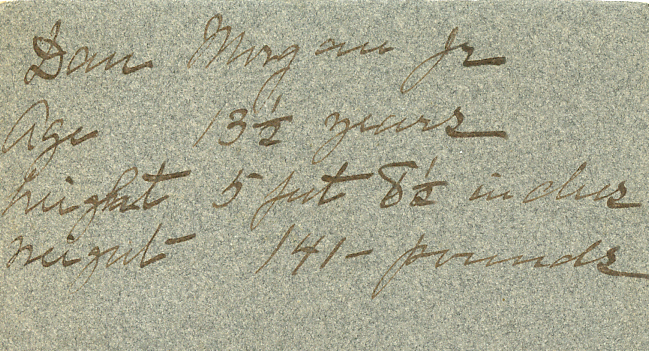 Dan Morgan Jr
Age 13½ years
height 5 feet 8½ inches
weight 141- pounds